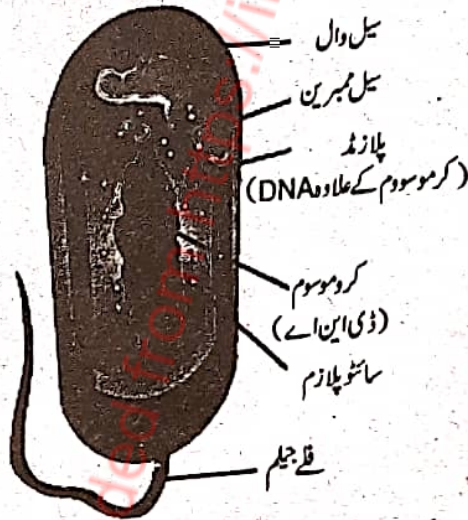 سیل وال
سیل ممبرین
پلازمڈ
(کرموسووم کے علاوہ DNA)
کروموسوم
(ڈی این اے)
سائٹوپلازم
فلے جیلم
ded from https://